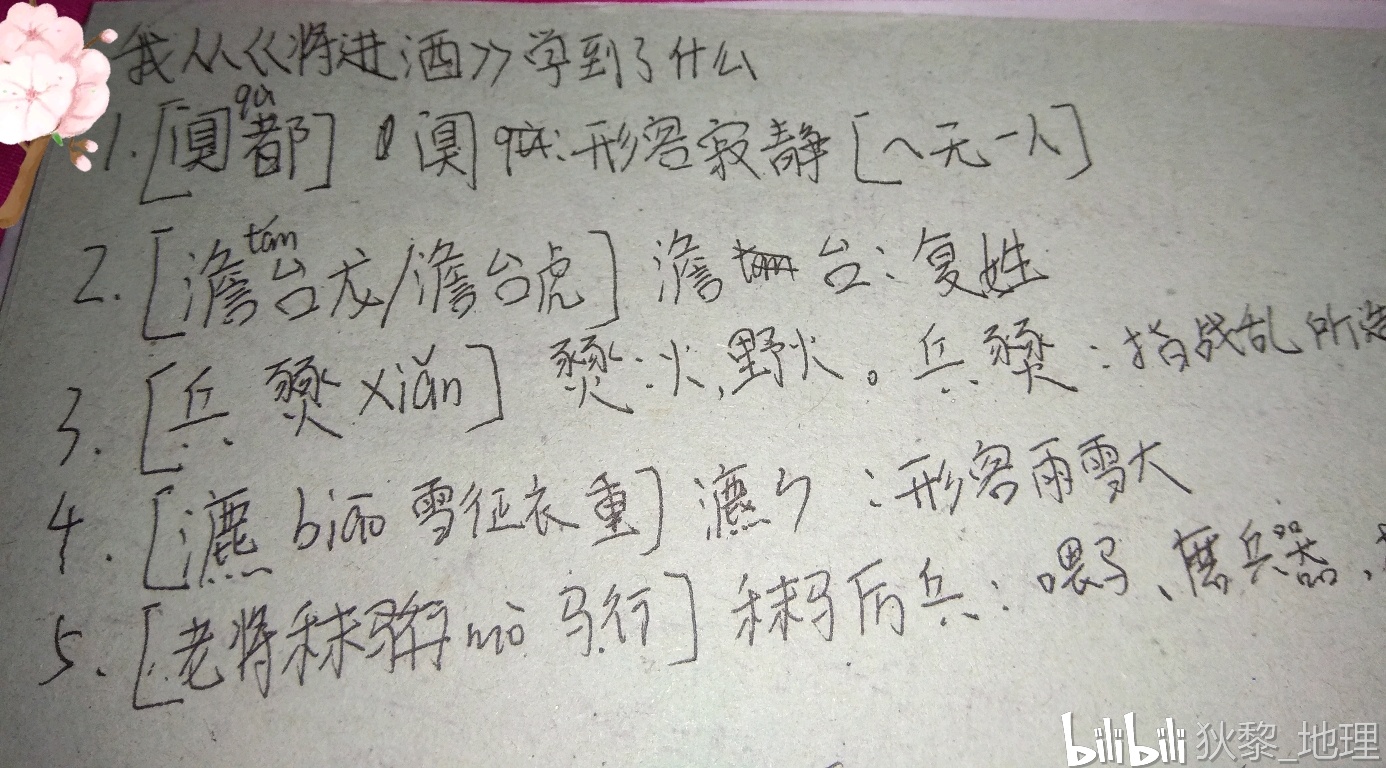 我从《将进酒》学到了什么
1.[阒qù都] 阒qù:形容寂静[~无一人]
2.[澹tán台龙/澹台虎] 澹台:复姓
3.[兵燹xiǎn] 燹:火,野火。兵燹:指战乱所造
4.[瀌biāo雪征衣重] 瀌ㄅ:形容雨雪大
5.[老将秣mò马行] 秣马厉兵:喂马、磨兵器,
bilibili 狄黎_地理